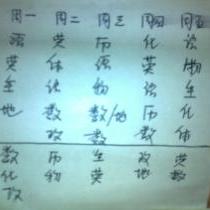 周一 周二 周三 周四 周五
语 英 历 化 语
英 体 语 英 物
生 化 物 语 生
地 数 数/地 历 化
政 数 数 体
数 历 生 政 英
化 物 英 地 数
政